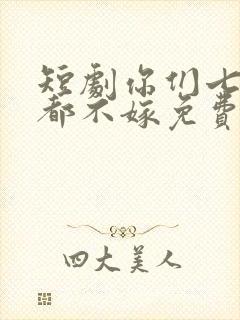 短劇你们七
都不嫁免費
四大美人